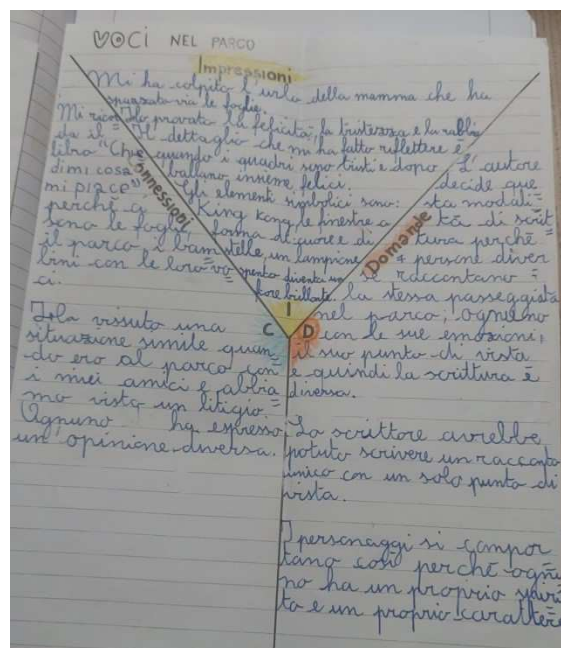 VOCI NEL PARCO
Impressioni
Mi ha colpito l'urlo della mamma che ha
spazzato via le foglie.
Ho provato la felicità, la tristezza e la rabbia
Il dettaglio che mi ha fatto riflettere è
quando i quadri sono tristi e dopo
ballano insieme felici.
Gli elementi simbolici sono:
King Kong, le finestre a
forma di cuore e di
stelle, un lampione
spento diventa un
fiore brillante.
Connessioni
Mi ricor
da il =
libro "Che
dimi cosa
mi piace"
perchè ci
sono le foglie
il parco, i bam=
bini con le loro vo=
ci.
Ho vissuto una
situazione simile quan=
do ero al parco con
i miei amici e abbia=
mo visto un litigio.
Ognuno ha espresso
un'opinione diversa.
Domande
L'autore
decide que
sta modali=
tà di scrit=
tura perchè
4 persone diver
se raccontano =
la stessa passeggiata
nel parco; ognuno
con le sue emozioni,
il suo punto di vista
e quindi la scrittura è
diversa.
Lo scrittore avrebbe
potuto scrivere un racconto
unico con un solo punto di
vista.
I personaggi si compor
tano così perchè ognu
no ha un proprio spiri
to e un proprio carattere
I
C D